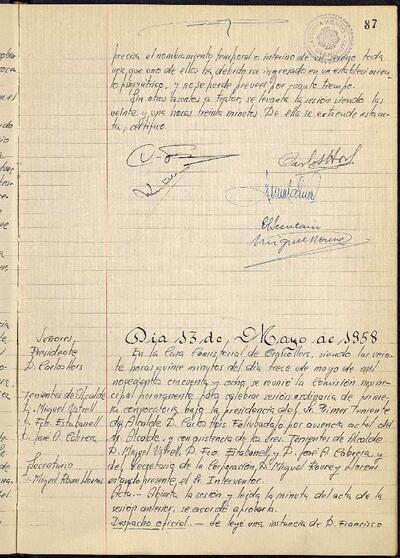 87
precisa el nombramiento temporal o interino de un sereno toda
vez que uno de ellos ha debido ser ingresado en un establecimiento
psiquiátrico, y no se puede prever por cuanto tiempo.
Sin otros asuntos a tratar, se levanta la sesión siendo las
veinte y una horas treinta minutos. De ella se extiende esta ac-
ta, certifico.
Carlos Hors
El Secretario
Miguel Roure
Señores
Presidente
D. Carlos Hors
Tenientes de Alcalde
D. Miguel Ustrell
D. Fco. Estabanell
D. José A. Cabrera
Secretario
D. Miguel Roure Llorens
Dia 13 de, Mayo de 1958
En la Casa Consistorial de Argentona, siendo las vein-
te horas quince minutos del día trece de mayo de mil
novecientos cincuenta y ocho, se reunió la Comisión muni-
cipal permanente para celebrar sesión ordinaria de prime-
ra convocatoria bajo la presidencia del Sr. Primer Teniente
de Alcalde D. Carlos Hors por ausencia actual del
Sr. Alcalde, y con asistencia de los Sres. Tenientes de Alcalde
D. Miguel Ustrell, D. Fco. Estabanell y D. José A. Cabrera y
del Secretario de la Corporación D. Miguel Roure y Llorens
estando presente el Sr. Interventor.
Acta.- Abierta la sesión y leída la minuta del acta de la
sesión anterior, se acordó aprobarla.
Despacho oficial.- Se leyó una instancia de D. Francisco